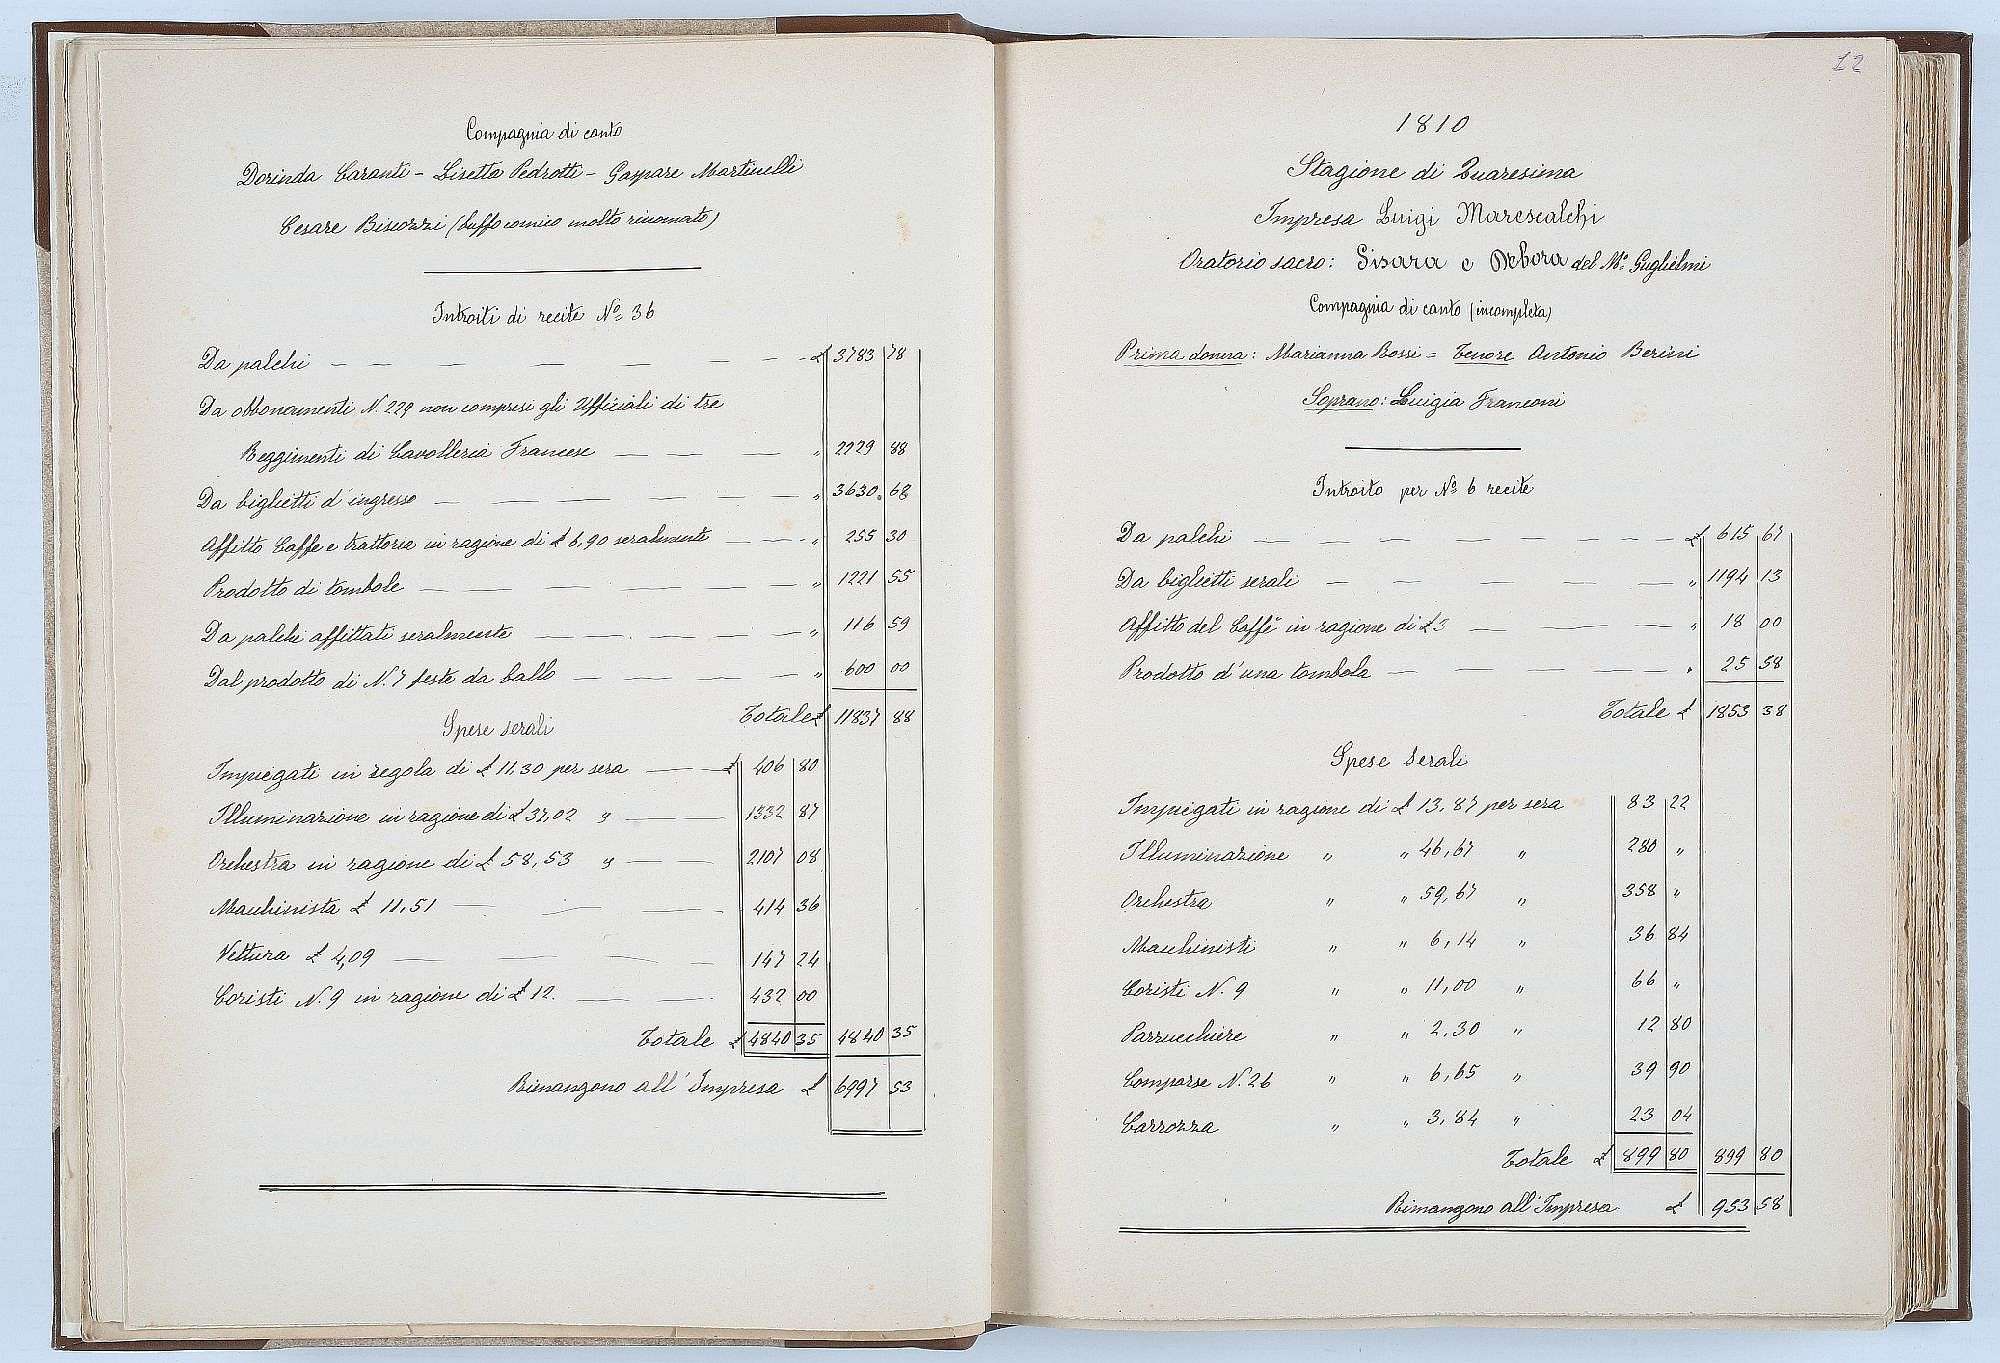 Compagnia di canto
Dorinda Caranti - Lisetta Pedrotti - Gaspare Martinelli
Cesare Biscozzi (buffo comico molto rinomato)
Introiti di recite Nº 36
Da palchi £ 3783 78
Da abbonamenti N. 229 non compresi gli Ufficiali di tre
Reggimenti di Cavalleria Francese " 2229 88
Da biglietti d'ingresso " 3630. 68
Affitto Caffe e trattoria in ragione di £ 6,90 seralmente " 255 30
Prodotto di tombole " 1221 55
Da palchi affittati seralmente " 116 59
Dal prodotto di N. 7 feste da ballo " 600 00
Totale £ 11837 88
Spese serali
Impiegati in regola di £ 11,30 per sera £ 406 80
Illuminazione in ragione di £ 37,02 " 1332 87
Orchestra in ragione di £ 58,53 " 2107 08
Macchinista £ 11,51 414 36
Vettura £ 4,09 147 24
Coristi N. 9 in ragione di £ 12. 432 00
Totale £ 4840 35 4840 35
Rimangono all'Impresa £ 6997 53
12
1810
Stagione di Quaresima
Impresa Luigi Marescalchi
Oratorio sacro: Sisara e Debora del Mº Guglielmi
Compagnia di canto (incompleta)
Prima donna: Marianna Rossi = Tenore Antonio Berini
Soprano: Luigia Franconi
Introito per Nº 6 recite
Da palchi £ 615 67
Da biglietti serali " 1194 13
Affitto del Caffè in ragione di £3 " 18 00
Prodotto d'una tombola " 25 58
Totale £ 1853 38
Spese serali
Impiegati in ragione di £ 13,87 per sera 83 22
Illuminazione " " 46,67 " 280 "
Orchestra " " 59,67 " 358 "
Macchinisti " " 6,14 " 36 84
Coristi N. 9 " " 11,00 " 66 "
Parrucchiere " " 2,30 " 12 80
Comparse N. 26 " " 6,65 " 39 90
Carrozza " " 3,84 " 23 04
Totale £ 899 80 899 80
Rimangono all'Impresa £ 953 58